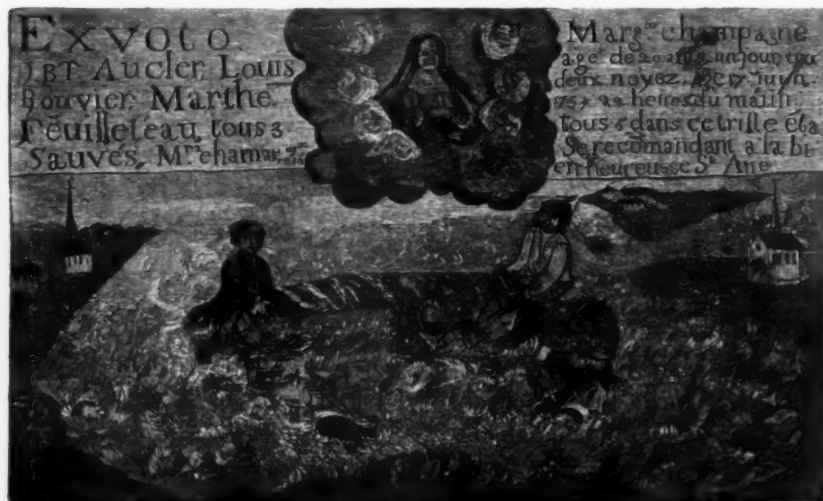 EXVOTO
J.BT Aucler, Louis
Bouvier, Marthe
Feuilleteau tous 3
Sauvés, M.
Marg.te champagne
agé de 20 ans un jour,
deux noyez, 17 juin
a 2 heures du matin
tous 5 dans ce triste éta
Se recomandant a la bi
en heureusse S.te Anne